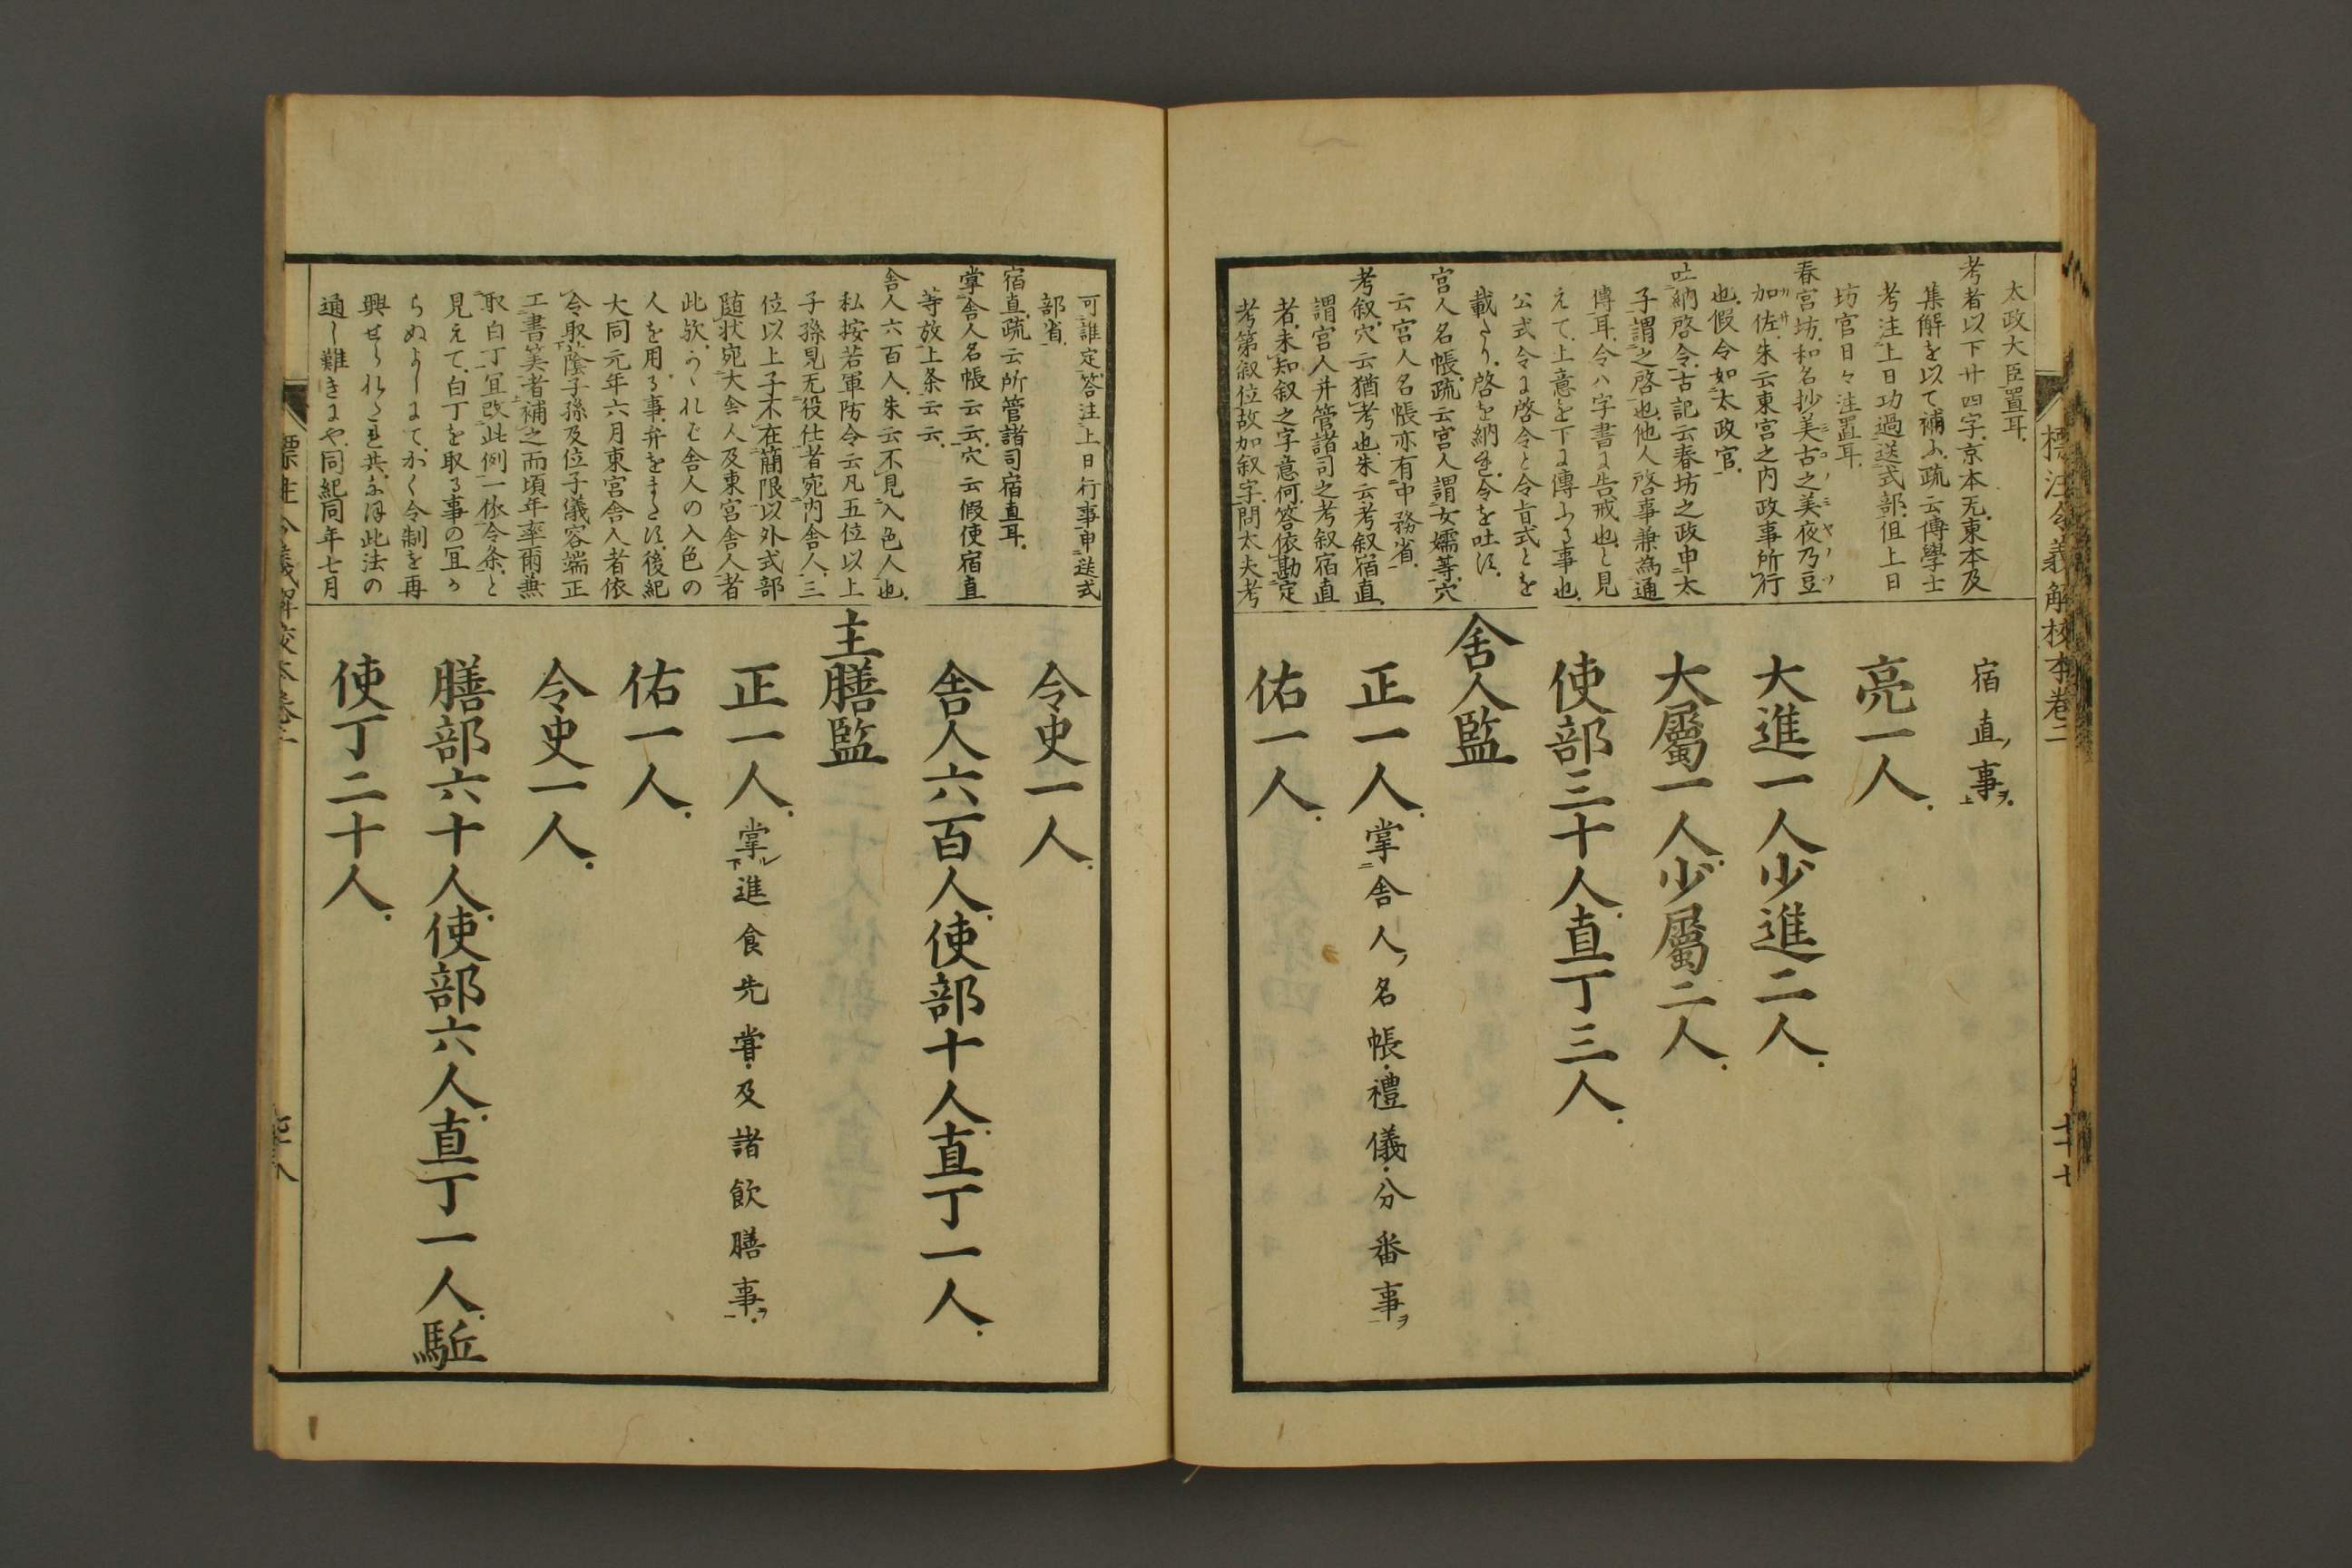 標注令義解校本卷二
太政大臣置耳、
考者以下廿四字、京本无、東本及
集解を以て補ふ、疏云傳學士
考注上日功過送式部、但上日
坊官日々注置耳、
春宮坊、和名抄美古之美夜乃豆
加佐、朱云東宮之内政事所行
也、假令如太政官、
吐納啓令、古記云春坊之政申太
子謂之啓也、他人啓事兼為通
傳耳、令ハ字書に告戒也と見
えて、上意を下に傳ふる事也、
公式令に啓令と令旨式とを
載たり、啓を納き令を吐は、
宮人名帳、疏云宮人謂女孺等、穴
云宮人名帳亦有中務省、
考叙、穴云猶考也、朱云考叙宿直、
謂宮人并管諸司之考叙宿直
者、未知叙之字意何、答依勘定
考第叙位故加叙字、問太夫考
宿直事
亮一人
大進一人少進二人
大屬一人少屬二人
使部三十人直丁三人
舎人監
正一人掌舎人名帳禮儀分番事
佑一人
可誰定、答注上日行事申送式
部省、
宿直、疏云所管諸司宿直耳、
掌舎人名帳云云、穴云假使宿直
等放上条云云、
舎人六百人、朱云不見入色人也、
私按若軍防令云凡五位以上
子孫見无役仕者宛内舎人、三
位以上子不在簡限以外式部
随状宛大舎人及東宮舎人者
此欤、かゝれど舎人の入色の
人を用る事、弁をまたは、後紀
大同元年六月東宮舎人者依
令取蔭子孫及位子儀容端正
工書笇者補之而頃年率爾兼
取白丁宜改此例一依令条、と
見えて、白丁を取る事の冝か
らぬよしにて、かく令制を再
興せられたれ共、なほ此法の
通し難きにや、同紀同年七月
令史一人
舎人六百人使部十人直丁一人
主膳監
正一人掌進食先嘗及諸飲膳事
佑一人
令史一人
膳部六十人使部六人直丁一人駈
使丁二十人